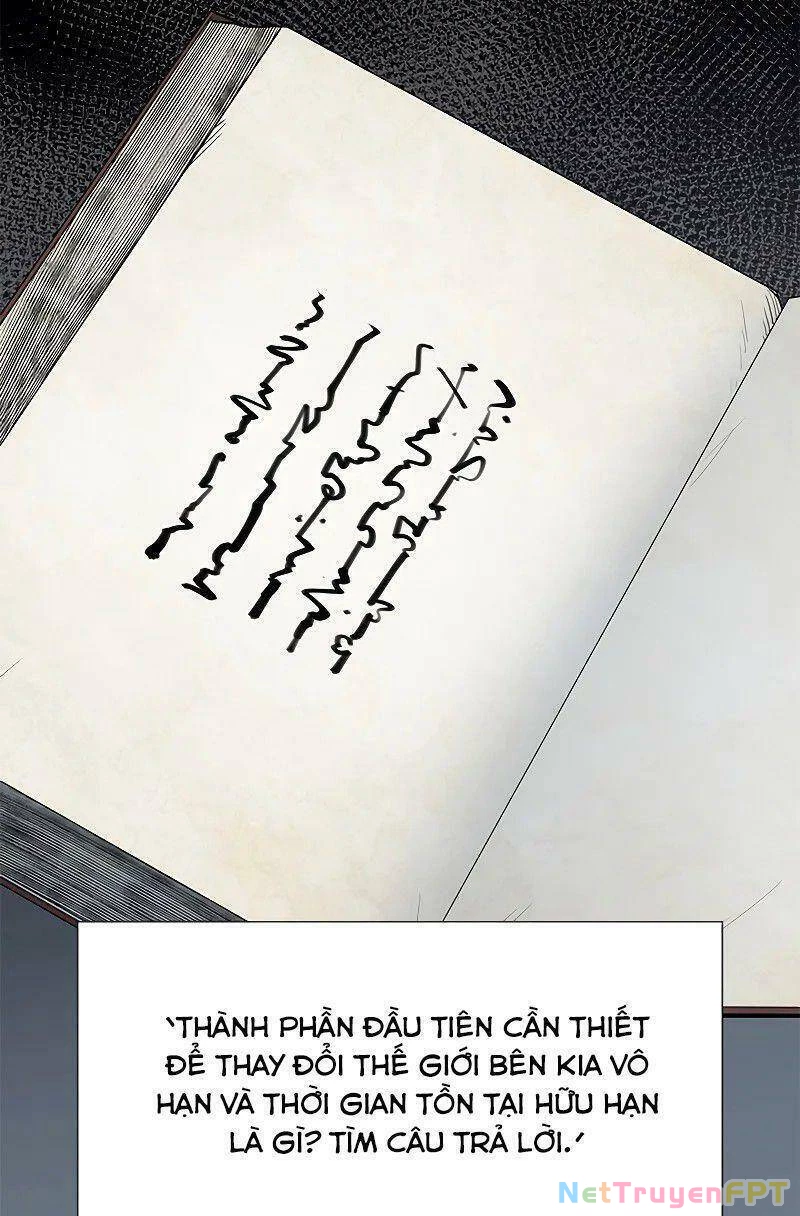 ‘THÀNH PHẦN ĐẦU TIÊN CẦN THIẾT
ĐỂ THAY ĐỔI THẾ GIỚI BÊN KIA VÔ
HẠN VÀ THỜI GIAN TỒN TẠI HỮU HẠN
LÀ GÌ? TÌM CÂU TRẢ LỜI.’
NetTruyenFPT